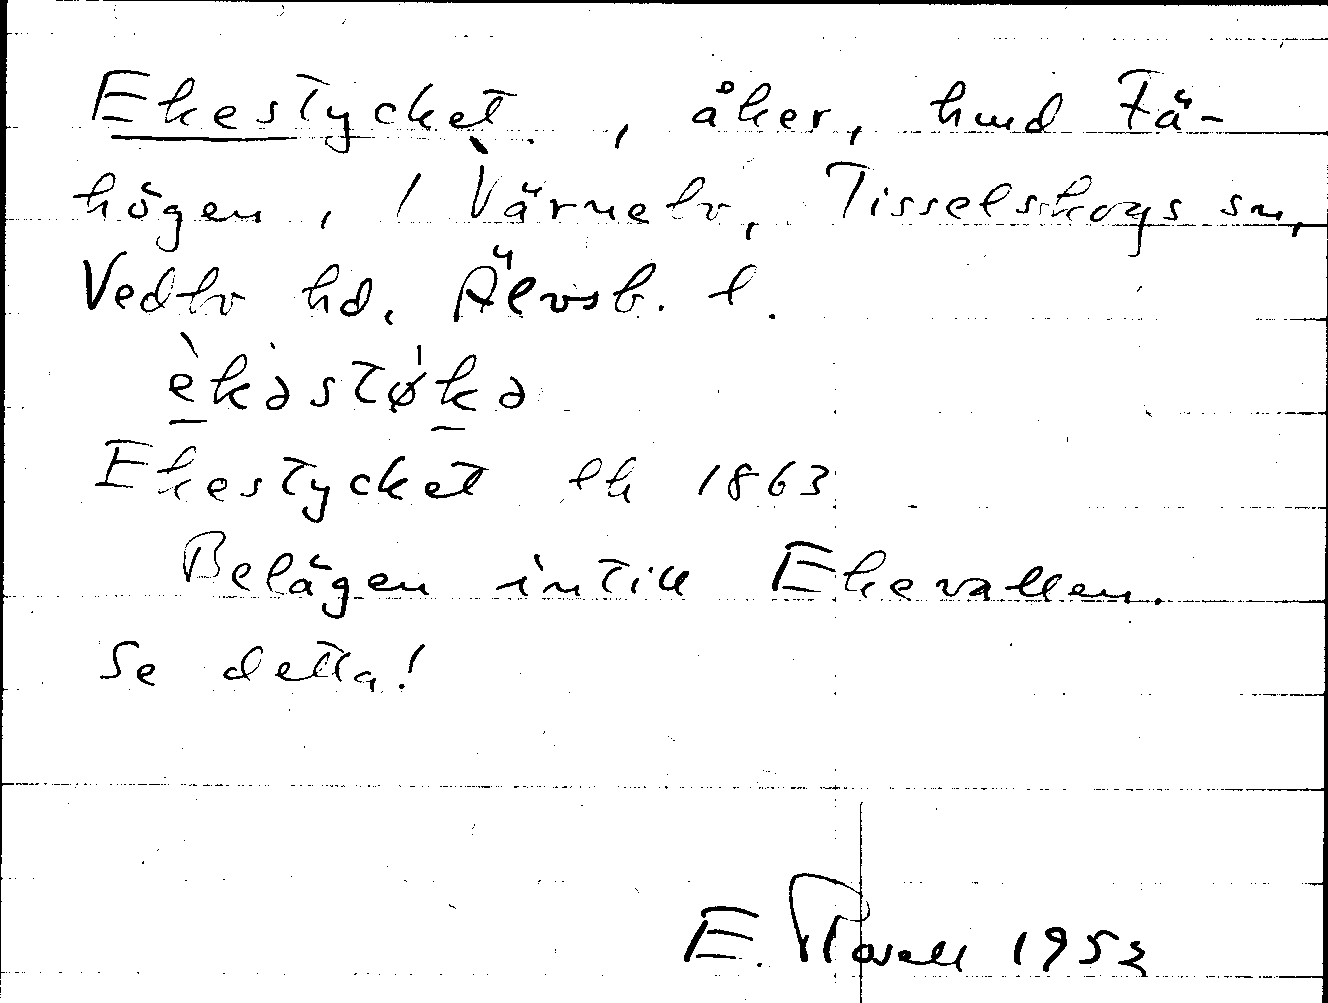 Ekestycket, åker, hmd Fä-
högen, 1 Värnebo, Tisselskogs sn,
Vedbo hd, Älvsb. l.
èkəstø̍kə
Ekestycket ek 1863
Belägen intill Ekevallen.
Se detta!
E. 1953